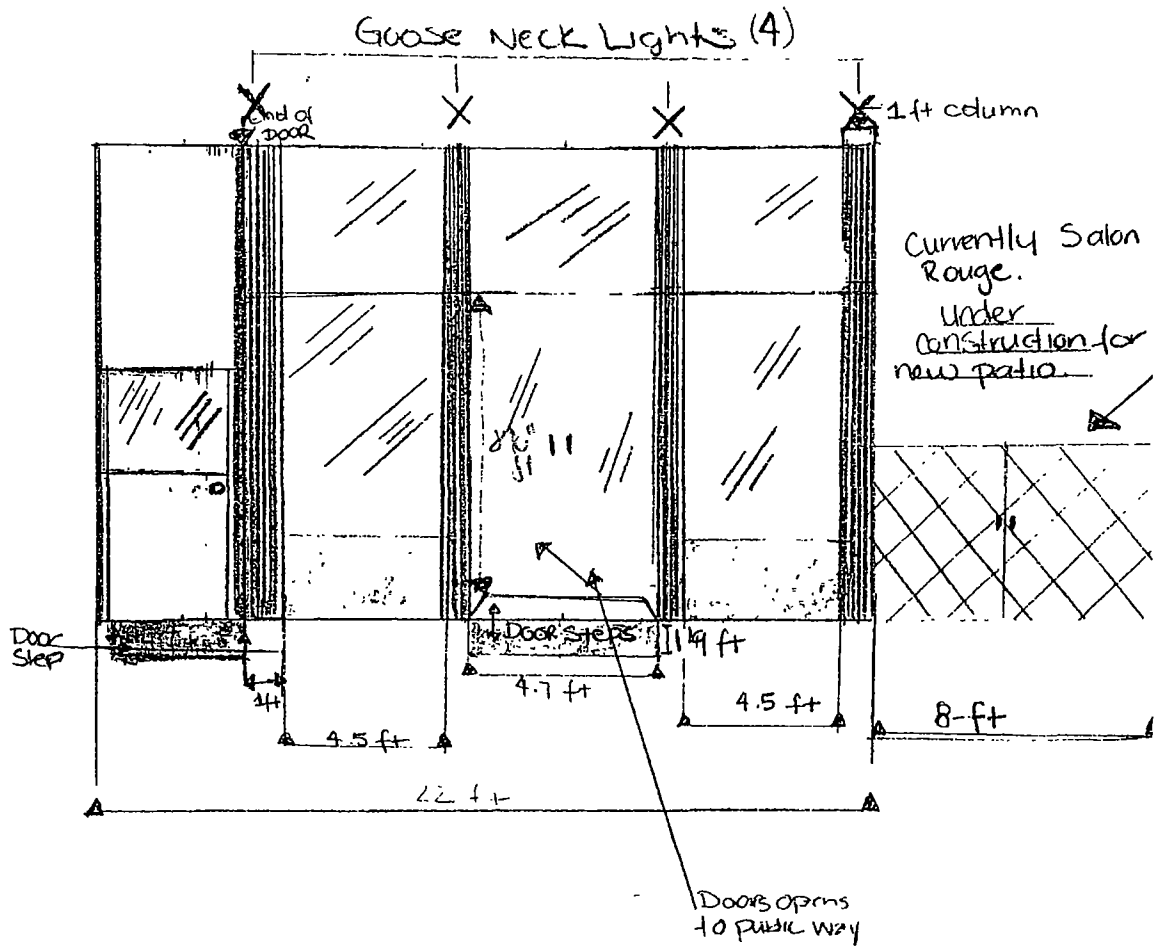 Goose Neck Lights (4)
End of
DOOR
1 ft column
Currently Salon
Rouge.
under
construction for
new patio.
Door
Step
DOOR STEPS
1ft
4.7 ft
4.5 ft
4.5 ft
8-ft
22 ft
Doors opens
to public way